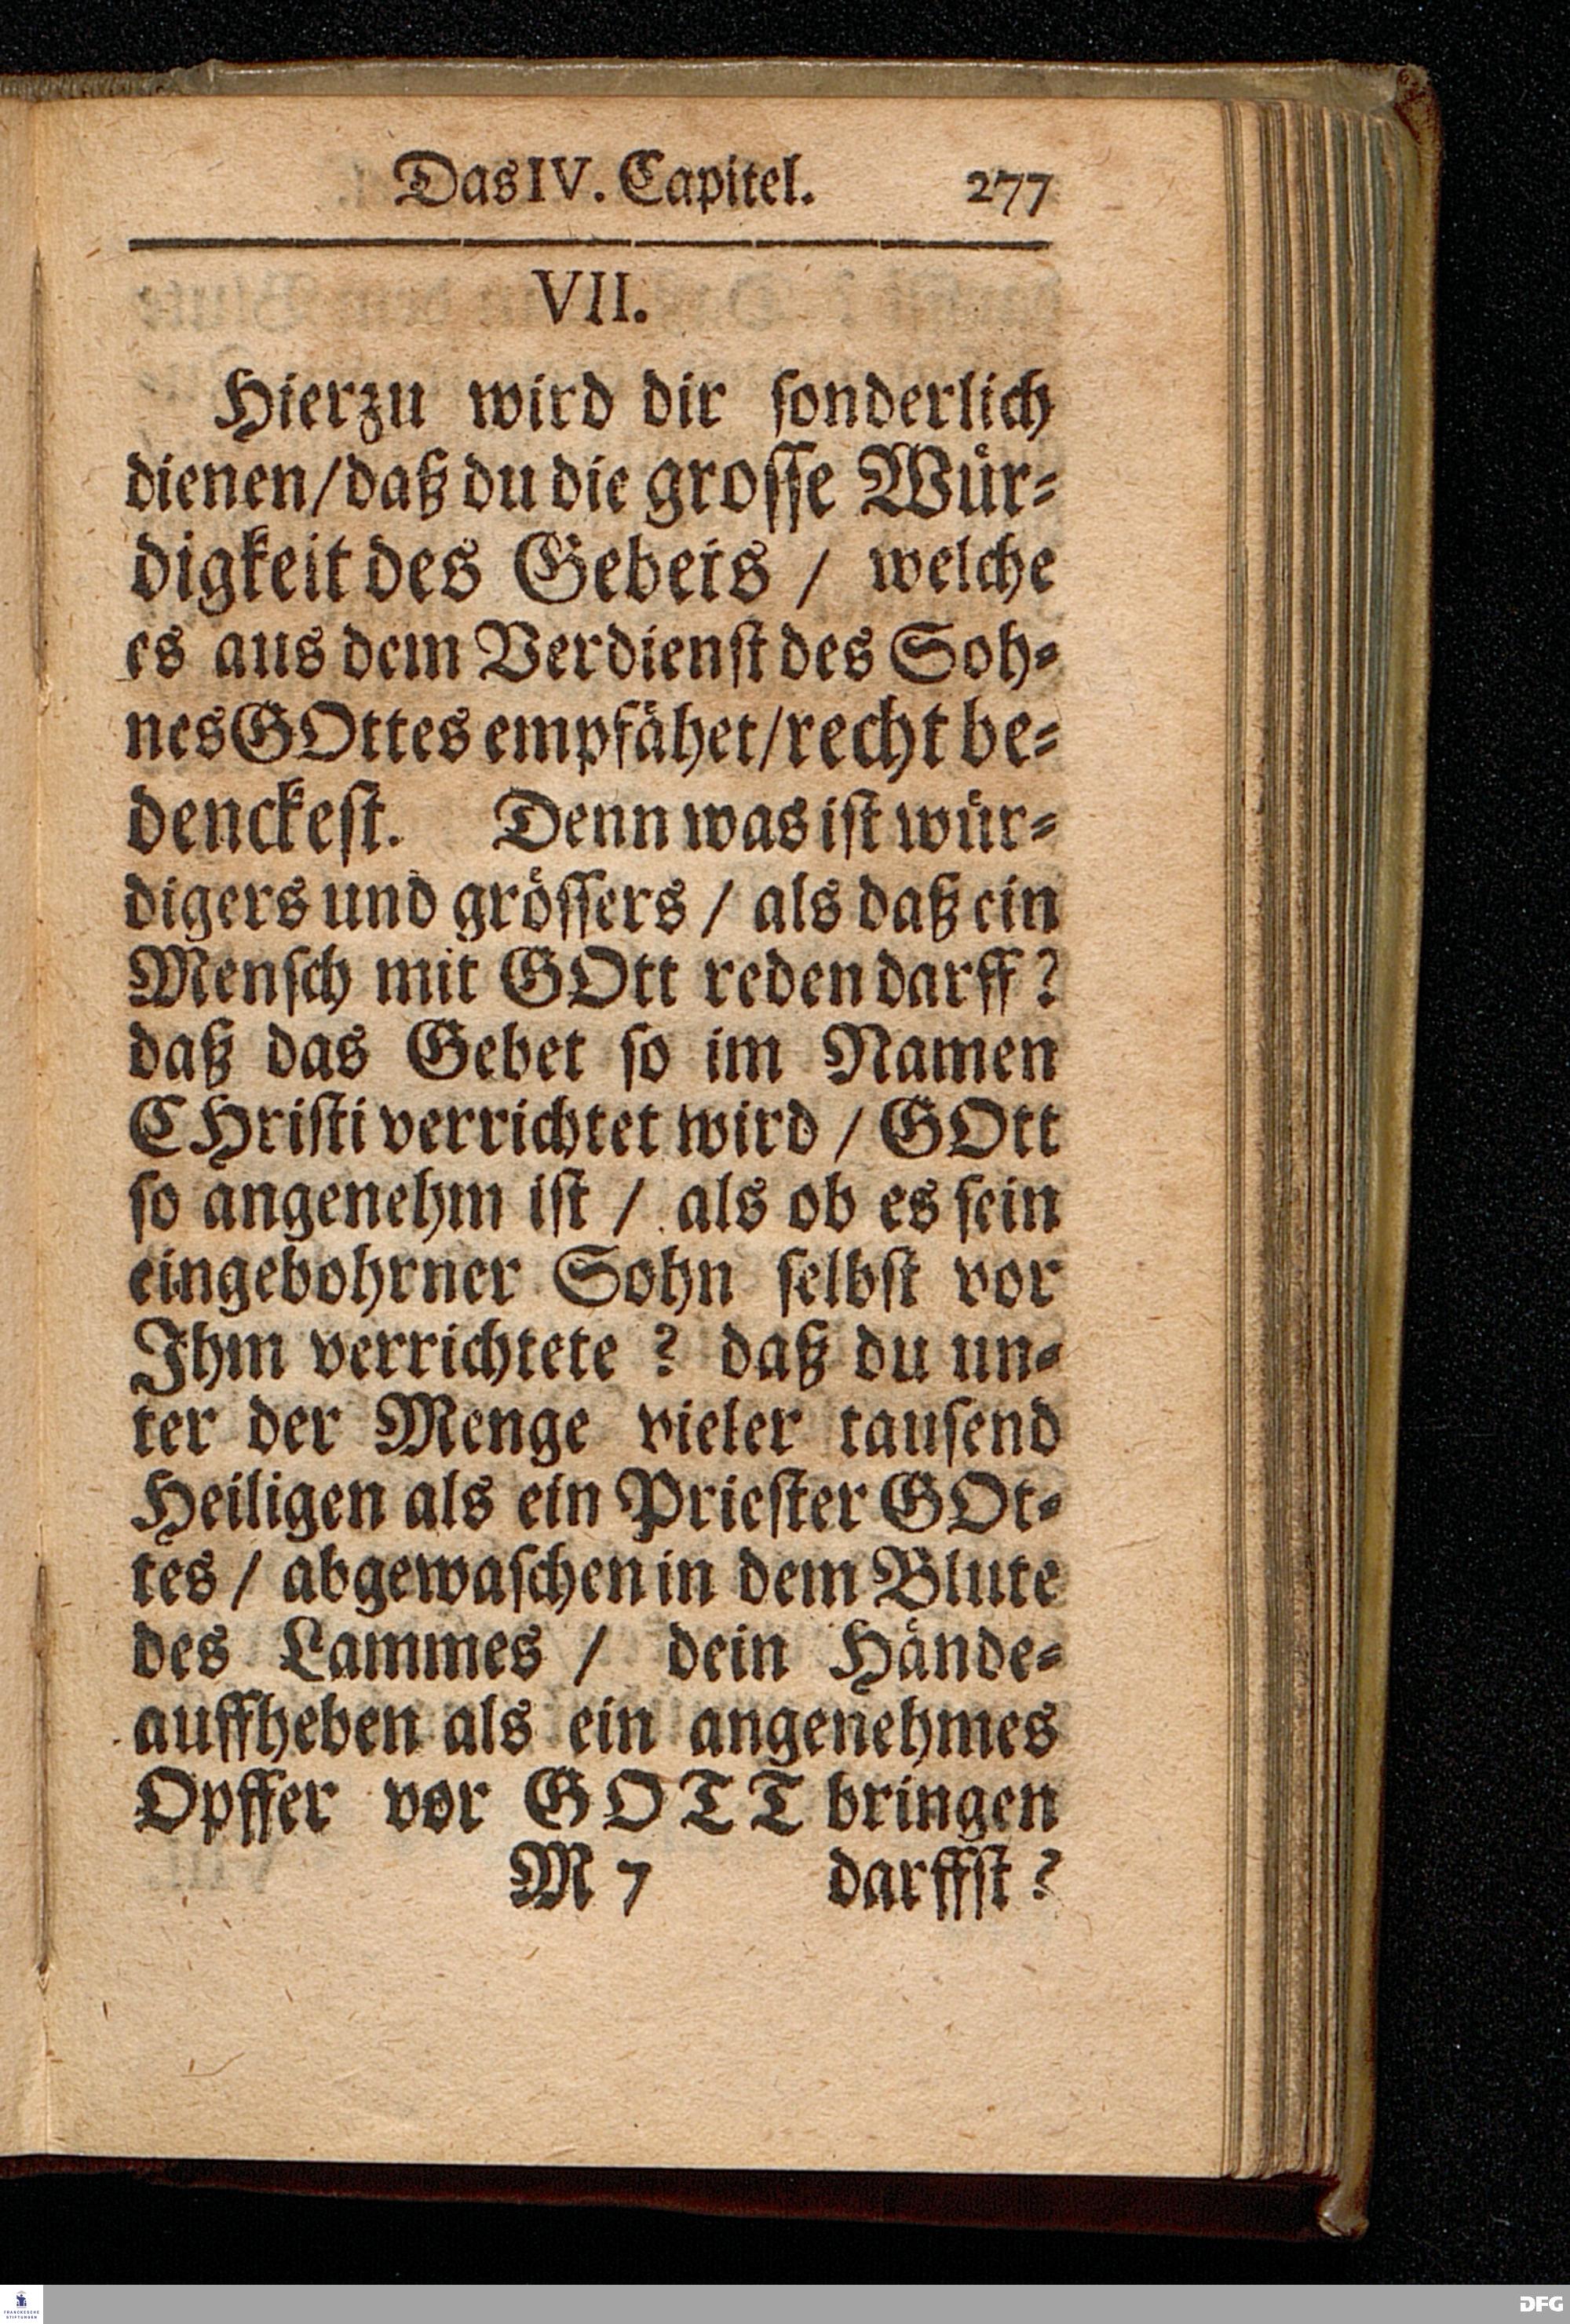 Das IV. Capitel. 277
VII.
Hierzu wird dir ſonderlich
dienen/daß du die groſſe Wuͤr⸗
digkeit des Gebets / welche
es aus dem Verdienſt des Soh⸗
nes GOttes empfaͤhet/recht be⸗
denckeſt. Denn was iſt wuͤr⸗
digers und groͤſſers / als daß ein
Menſch mit GOtt reden darff?
daß das Gebet ſo im Namen
CHriſti verrichtet wird / GOtt
ſo angenehm iſt / als ob es ſein
eingebohrner Sohn ſelbſt vor
Ihm verrichtete ? daß du un⸗
ter der Menge vieler tauſend
Heiligen als ein Prieſter GOt⸗
tes / abgewaſchen in dem Blute
des Lammes / dein Haͤnde⸗
auffheben als ein angenehmes
Opffer vor GOTT bringen
M 7 darffſt ?
FRANCKESCHE
STIFTUNGEN
DFG